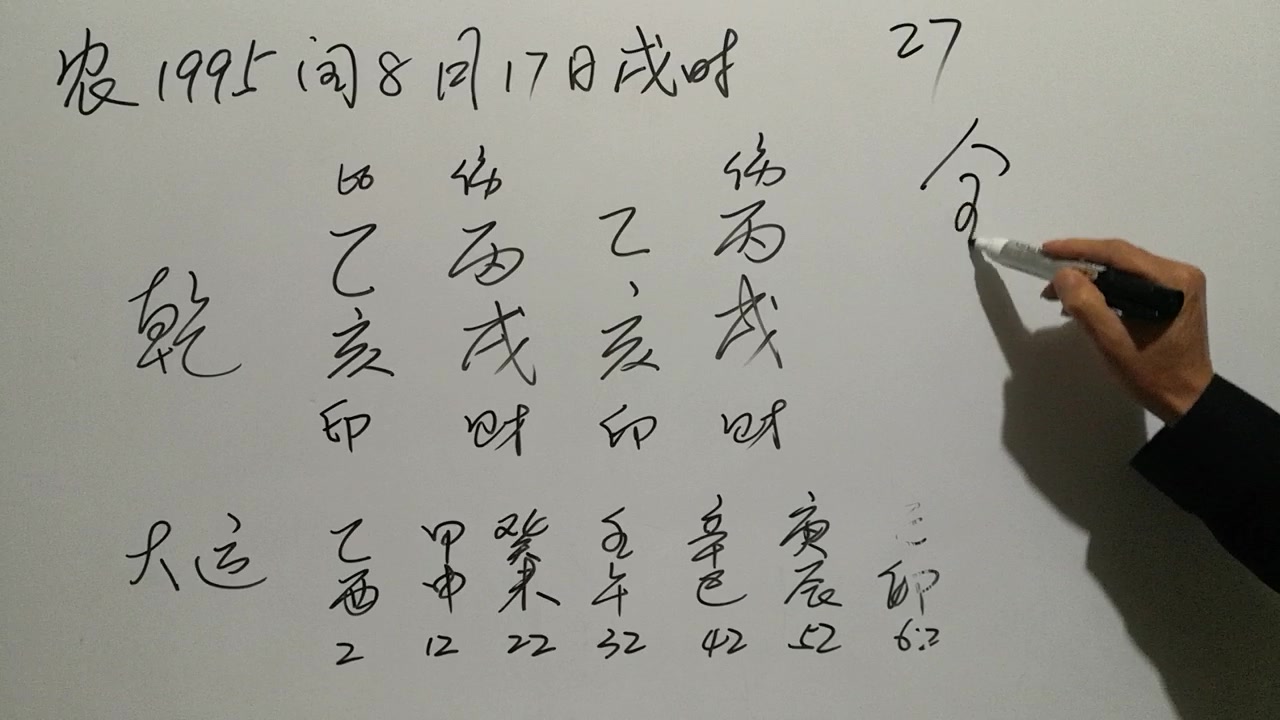 农1995闰8月17日戌时 27
比 伤 伤
乙 丙 乙 丙
乾 亥 戌 亥 戌
印 财 印 财
大运 乙 甲 癸 壬 辛 庚
酉 申 未 午 巳 辰 卯
2 12 22 32 42 52 62